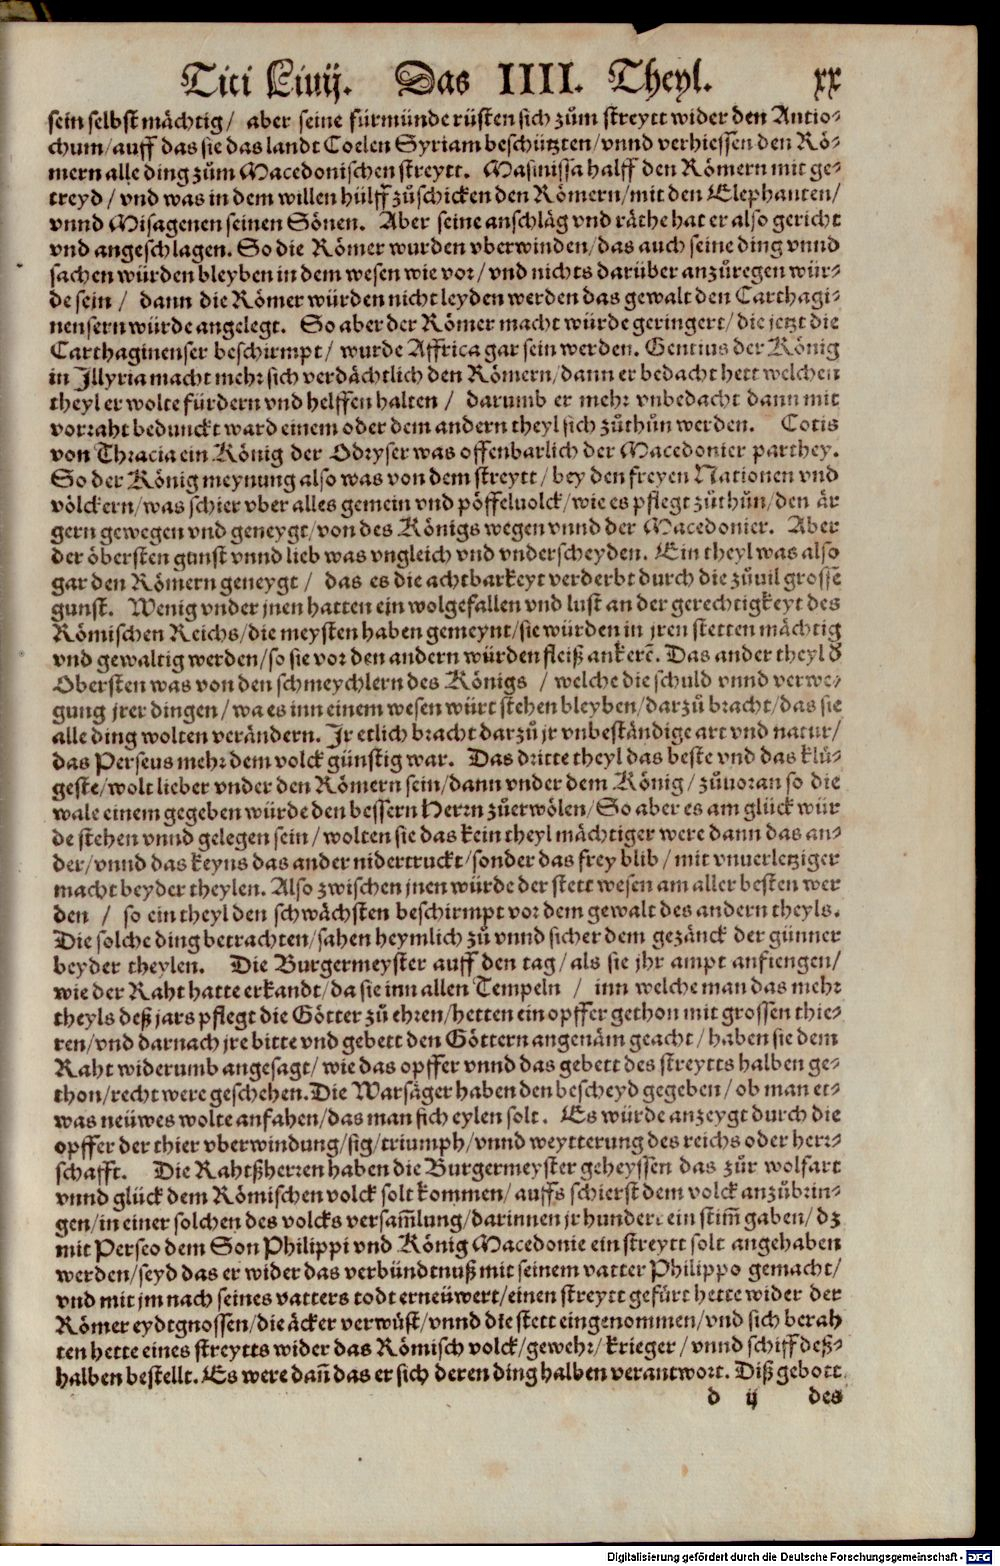 Titi Liuij. Das IIII. Theyl. xx
sein selbst mächtig/ aber seine fürmünde rüsten sich zům streytt wider den Antio-
chum/auff das sie das landt Coelen Syriam beschützten/vnnd verhiessen den Rö-
mern alle ding zům Macedonischen streytt. Masinissa halff den Römern mit ge-
treyd/ vnd was in dem willen hülff zůschicken den Römern/mit den Elephanten/
vnnd Misagenen seinen Sönen. Aber seine anschläg vnd räthe hat er also gericht
vnd angeschlagen. So die Römer wurden vberwinden/das auch seine ding vnnd
sachen würden bleyben in dem wesen wie vor/ vnd nichts darüber anzůregen wür-
de sein/ dann die Römer würden nicht leyden werden das gewalt den Carthagi-
nensern würde angelegt. So aber der Römer macht würde geringert/ die jetzt die
Carthaginenser beschirmpt/ wurde Affrica gar sein werden. Gentius der König
in Illyria macht mehr sich verdächtlich den Römern/dann er bedacht hett welchen
theyl er wolte fürdern vnd helffen halten/ darumb er mehr vnbedacht dann mit
vorraht bedunckt ward einem oder dem andern theyl sich zůthůn werden. Cotis
von Thracia ein König der Odryser was offenbarlich der Macedonier parthey.
So der König meynung also was von dem streytt/ bey den freyen Nationen vnd
völckern/was schier vber alles gemein vnd pöffeluolck/wie es pflegt zůthůn/den är
gern gewegen vnd geneygt/von des Königs wegen vnnd der Macedonier. Aber
der öbersten gunst vnnd lieb was vngleich vnd vnderscheyden. Ein theyl was also
gar den Römern geneygt/ das es die achtbarkeyt verderbt durch die zůuil grossē
gunst. Wenig vnder jnen hatten ein wolgefallen vnd lust an der gerechtigkeyt des
Römischen Reichs/die meysten haben gemeynt/sie würden in jren stetten mächtig
vnd gewaltig werden/so sie vor den andern würden fleiß ankerē. Das ander theyl d
Obersten was von den schmeychlern des Königs / welche die schuld vnnd verwe-
gung jrer dingen/wa es inn einem wesen würt stehen bleyben/darzů bracht/das sie
alle ding wolten verändern. Jr etlich bracht darzů jr vnbeständige art vnd natur/
das Perseus mehr dem volck günstig war. Das dritte theyl das beste vnd das klů-
geste/wolt lieber vnder den Römern sein/dann vnder dem König/ zůuoran so die
wale einem gegeben würde den bessern Herrn zůerwölen/So aber es am glück wür
de stehen vnnd gelegen sein/wolten sie das kein theyl mächtiger were dann das an-
der/vnnd das keyns das ander nidertruckt/sonder das frey blib/mit vnuerletziger
macht beyder theylen. Also zwischen jnen würde der stett wesen am aller besten wer
den / so ein theyl den schwächsten beschirmpt vor dem gewalt des andern theyls.
Die solche ding betrachten/sahen heymlich zů vnnd sicher dem gezänck der günner
beyder theylen. Die Burgermeyster auff den tag/als sie jhr ampt anfiengen/
wie der Raht hatte erkandt/da sie inn allen Tempeln / inn welche man das mehr
theyls deß jars pflegt die Götter zů ehren/hetten ein opffer gethon mit grossen thie-
ren/vnd darnach jre bitte vnd gebett den Göttern angenäm geacht/haben sie dem
Raht widerumb angesagt/wie das opffer vnnd das gebett des streytts halben ge-
thon/recht were geschehen. Die Warsäger haben den bescheyd gegeben/ob man et-
was neüwes wolte anfahen/das man sich eylen solt. Es würde anzeygt durch die
opffer der thier vberwindung/sig/triumph/vnnd weytterung des reichs oder herr-
schafft. Die Rahtßherren haben die Burgermeyster geheyssen das zůr wolfart
vnnd glück dem Römischen volck solt kommen/auffs schierst dem volck anzůbrin-
gen/in einer solchen des volcks versam̃lung/darinnen jr hundert ein stim̃ gaben/dz
mit Perseo dem Son Philippi vnd König Macedonie ein streytt solt angehaben
werden/seyd das er wider das verbündtnuß mit seinem vatter Philippo gemacht/
vnd mit jm nach seines vatters todt erneüwert/einen streytt gefürt hette wider der
Römer eydtgnossen/die äcker verwüst/vnnd die stett eingenommen/vnd sich berah
ten hette eines streytts wider das Römisch volck/gewehr/krieger/vnnd schiff deß-
halben bestellt. Es were dañ das er sich deren ding halben verantwort. Diß gebott
d ij des
Digitalisierung gefördert durch die Deutsche Forschungsgemeinschaft - DFG